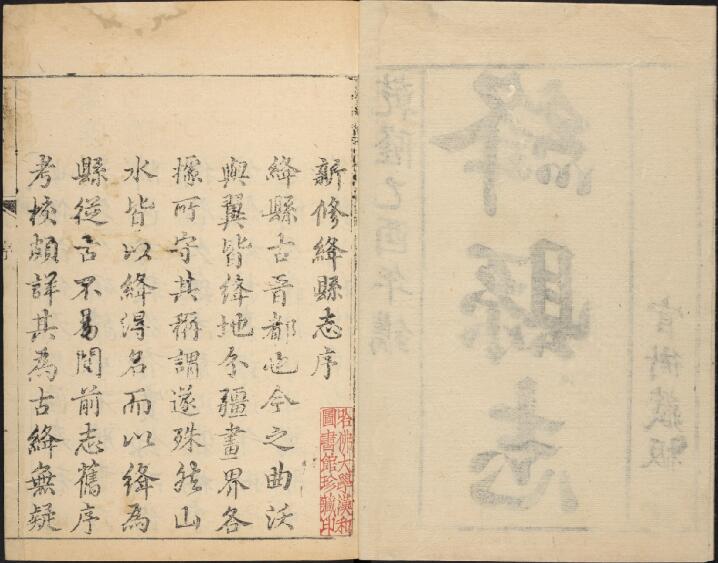 乾隆乙酉年鐫
絳縣志
官衙藏版
新修絳縣志序
絳縣古晉都也今之曲沃
與翼皆絳地分疆畫界各
據所守其稱謂遂殊然山
水皆以絳得名而以絳為
縣從古不易閱前志舊序
考校頗詳其為古絳無疑
哈佛大學漢和
圖書館珍藏印
序